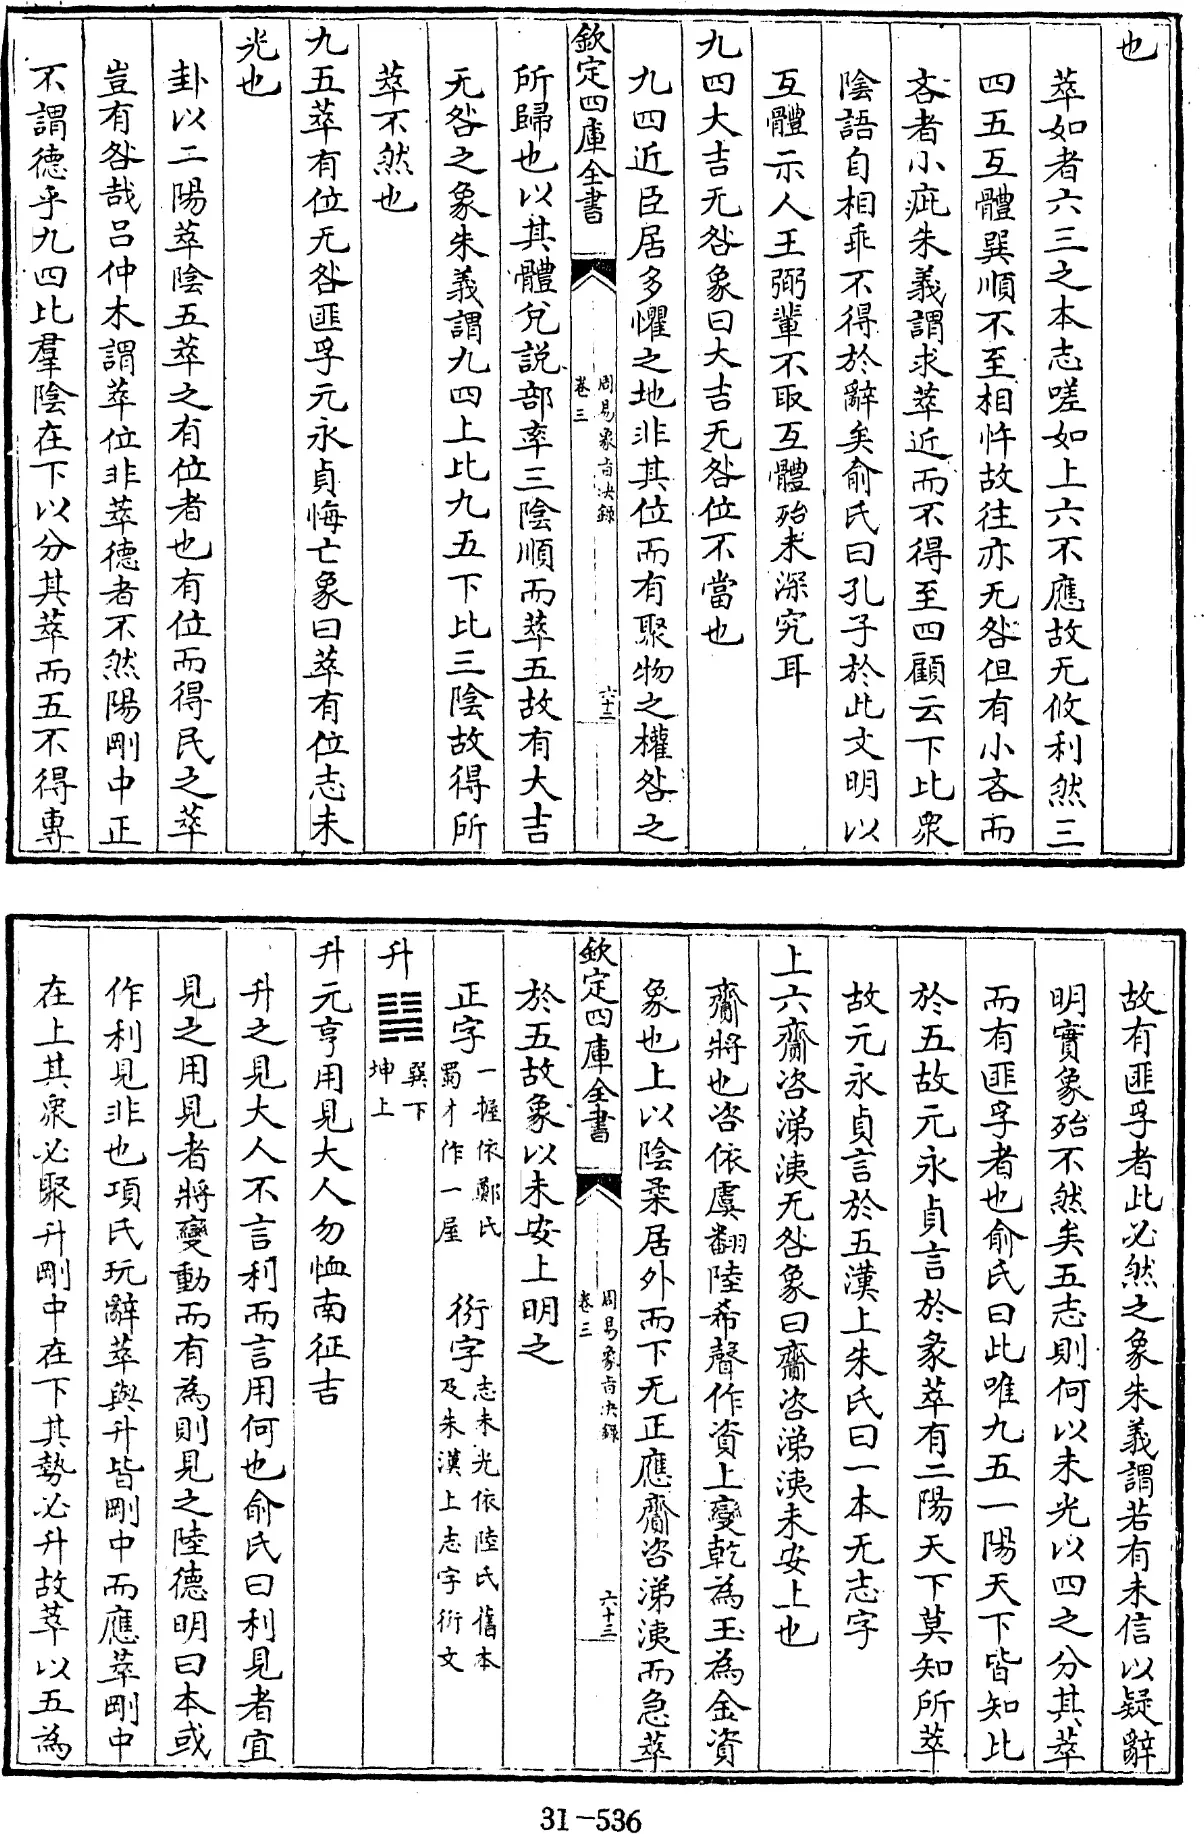 也
萃如者六三之本志嗟如上六不應故无攸利然三
四五互體巽順不至相忤故往亦无咎但有小吝而
吝者小疵朱義謂求萃近而不得至四顧云下比衆
陰語自相乖不得於辭矣俞氏曰孔子於此文明以
互體示人王弼輩不取互體殆未深究耳
九四大吉无咎象曰大吉无咎位不當也
九四近臣居多懼之地非其位而有聚物之權咎之
欽定四庫全書
周易象旨決録
卷三
六十二
所歸也以其體兌説部率三陰順而萃五故有大吉
无咎之象朱義謂九四上比九五下比三陰故得所
萃不然也
九五萃有位无咎匪孚元永貞悔亡象曰萃有位志未
光也
卦以二陽萃陰五萃之有位者也有位而得民之萃
豈有咎哉吕仲木謂萃位非萃德者不然陽剛中正
不謂德乎九四比羣陰在下以分其萃而五不得專
故有匪孚者此必然之象朱義謂若有未信以疑辭
明實象殆不然矣五志則何以未光以四之分其萃
而有匪孚者也俞氏曰此唯九五一陽天下皆知比
於五故元永貞言於彖萃有二陽天下莫知所萃
故元永貞言於五漢上朱氏曰一本无志字
上六齎咨涕洟无咎象曰齎咨涕洟未安上也
齎將也咨依虞翻陸希聲作資上變乾為玉為金資
象也上以陰柔居外而下无正應齎咨涕洟而急萃
欽定四庫全書
周易象旨決録
卷三
六十三
於五故象以未安上明之
正字 一握依鄭氏蜀才作一屋 衍字 志未光依陸氏舊本及朱漢上志字衍文
升 ䷭ 巽下坤上
升元亨用見大人勿恤南征吉
升之見大人不言利而言用何也俞氏曰利見者宜
見之用見者將變動而有為則見之陸德明曰本或
作利見非也項氏玩辭萃與升皆剛中而應萃剛中
在上其衆必聚升剛中在下其勢必升故萃以五為
31-536